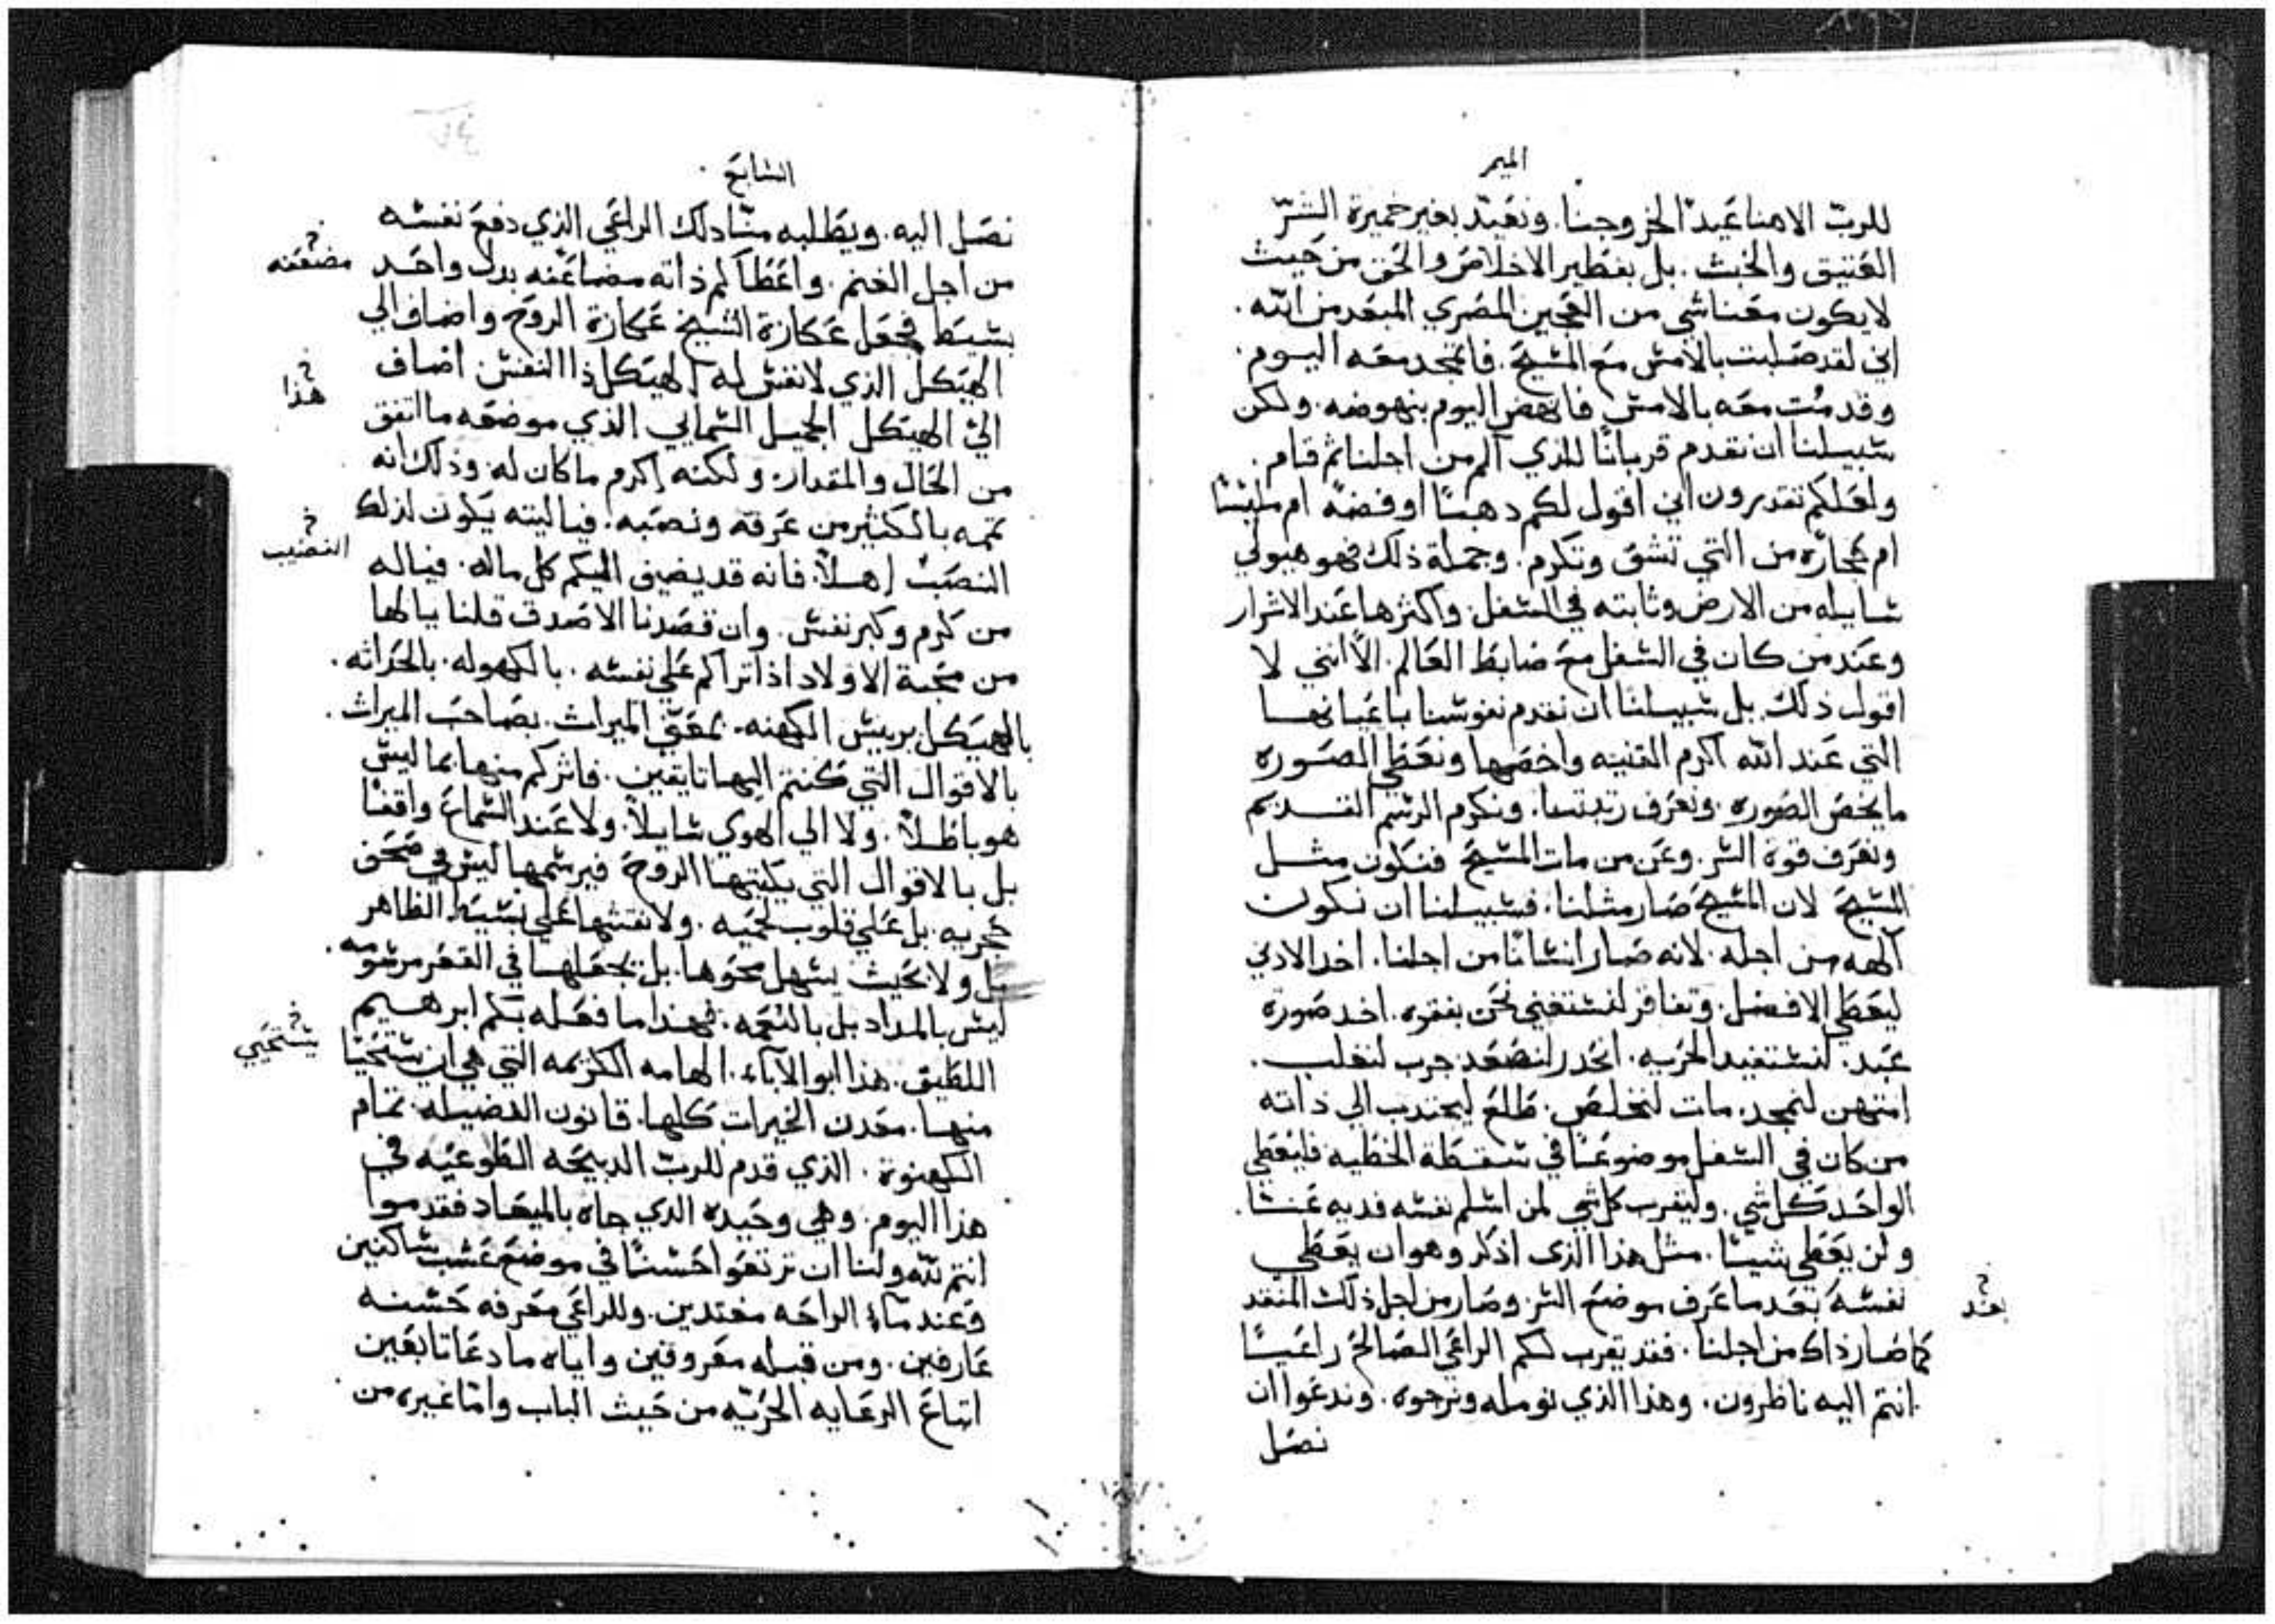 الميمر
للربّ الاهنا عَيد الخروجنا. ونعَيّد بغير خميرة الشرّ
العَتيق والخبث. بل بفطير الاخلاص والحَق من حَيث
لا يكون معَنا شي من العَجين المصَري المبعَد من الله.
اني لقد صَلبت بالامس مع المسَيحَ. فاتمجد معَه اليوم.
وقد مُت معَه بالامس فانهض اليوم بنهوضه. ولكن
سَبيلنا ان نقدم قربانًا للذي آلم من اجلنا ثم قام.
ولعَلكم تقدرون اني اقول لكم دهبًا او فضةً ام ملبسًا
ام حجارة من التي تشق وتكرم. وجملة ذلك فهو هيولي
سَايله من الارض وثابته في السَفل. واكثرها عَند الاشرار
وعَند من كان في السَفل معَ ضابط العَالم. الّا انني لا
اقول ذلك. بل سَبيلنا ان نقدم نفوسَنا باعَيانهــا
التي عَند الله اكرم القنيه واخصَها ونعَطي الصَوره
ما يخصَ الصَوره. ونعَرف رتبتنا. ونكرم الرسَم القديم
ونعَرف قوة السَر. وعَن من مات المسَيحَ فنكون مثــل
المسَيحَ لان المسَيحَ صَار مثلنا. فسَبيلنا ان نكون
آلهه من اجله. لانه صَار انسَانًا من اجلنا. اخد الادني
ليعَطي الافضل. وتفاقر لنسَتغني نحَن بفقره. اخد صَورة
عَبد. لنسَتفيد الحرَيه. انحَدر لنصَعَد. جرب لنغلب.
امتهن لنمجد. مات لنخلصَ. طلعَ ليجتدب الي ذاته
من كان في السَفل موضوعًا في سَقطة الخطيه فليعَطي
الواحَد كل شي. وليقرب كل شي لمن اسَلم نفسَه فديه عَنــا.
ولن يعَطي شيئًا. مثل هذا الذي اذكر وهو ان يعَطي
نفسَه بعَد ما عَرف موضعَ السَر. وصَار من اجل ذلك المنقد
بعَد
كما صَار ذاك من اجلنا. فقد يقرب لكم الراعَي الصَالح راعَيًا
انتم اليه ناظرون. وهذا الذي نومله ونرجوه. وندعَوا ان
نصَل
السَابعَ
نصَل اليه. ويطلبه منّا دلك الراعَي الذي دفعَ نفسَه
من اجل الغنم. واعَطاكم ذاته مضاعَفه بدل واحَــد
مضعَفه
بسَيط فجعَل عَكازة الشيخ عَكازة الروحَ واضاف الي
الهيَكل الذي لا نفس له الهيَكل ذا النفس اضاف
هَذا
الي الهيَكل الجميل السَمايي الذي موضعَه ما اتفق
من الحَال والمقدار. ولكنه اكرم ما كان له. وذلك انه
تممه بالكثير من عَرقه ونصَبه. فياليته يكون لذلك
النصَب اهــلاً. فانه قد يضيف اليكم كل ماله. فياله
النصَيب
من كرم وكبر نفس. وان قصَدنا الاصَدق قلنا يالها
من محَبة الاولاد اذا تراكم عَلي نفسَه. بالكهوله. بالحَداثه.
بالهيَكل بريسَ الكهنه. بمعَقّ الميراث. بصَاحَب الميراث.
بالاقوال التي كنتم اليها تايقين. فاثركم منها بما ليسَ
هو باطــلاً. ولا الي الهوي سَايلاً. ولا عَند السَماعَ واقفًا
بل بالاقوال التي يكتبها الروحَ فيرسَمها ليسَ في صَحَف
حَجريه. بل عَلي قلوب لحَميه. ولا نقشها عَلي بسَيط الظاهر
بل ولا بحَيث يسَهل محَوها. بل يجعَلهــا في القعَر مرسَومه.
ليسَ بالمداد بل بالنعَمه. فهــدا ما فعَله بكم ابرهــيم
اللطيف. هذا ابو الآباء. الهامه الكريمه التي هي ان يسَتحَيا
يسَتحَيي
منهــا. معَدن الخيرات كلها. قانون الفضيله. تمام
الكهنوة. الذي قدم للربّ الدبيحَه الطوعَيه في
هذا اليوم. وهي وحَيده الدي جاه بالميعَاد فقدموا
انتم لله ولنا ان ترتعَوا حَسَنًا في موضعَ عَشب سَاكنين
وعَند ماء الراحَه مغتدين. وللراعَي معَرفه حَسَنه
عَارفين. ومن قبله معَروفين واياه ما دعَا تابعَين
اتباعَ الرعَايه الحَريّه من حَيث الباب وامّا غيره من